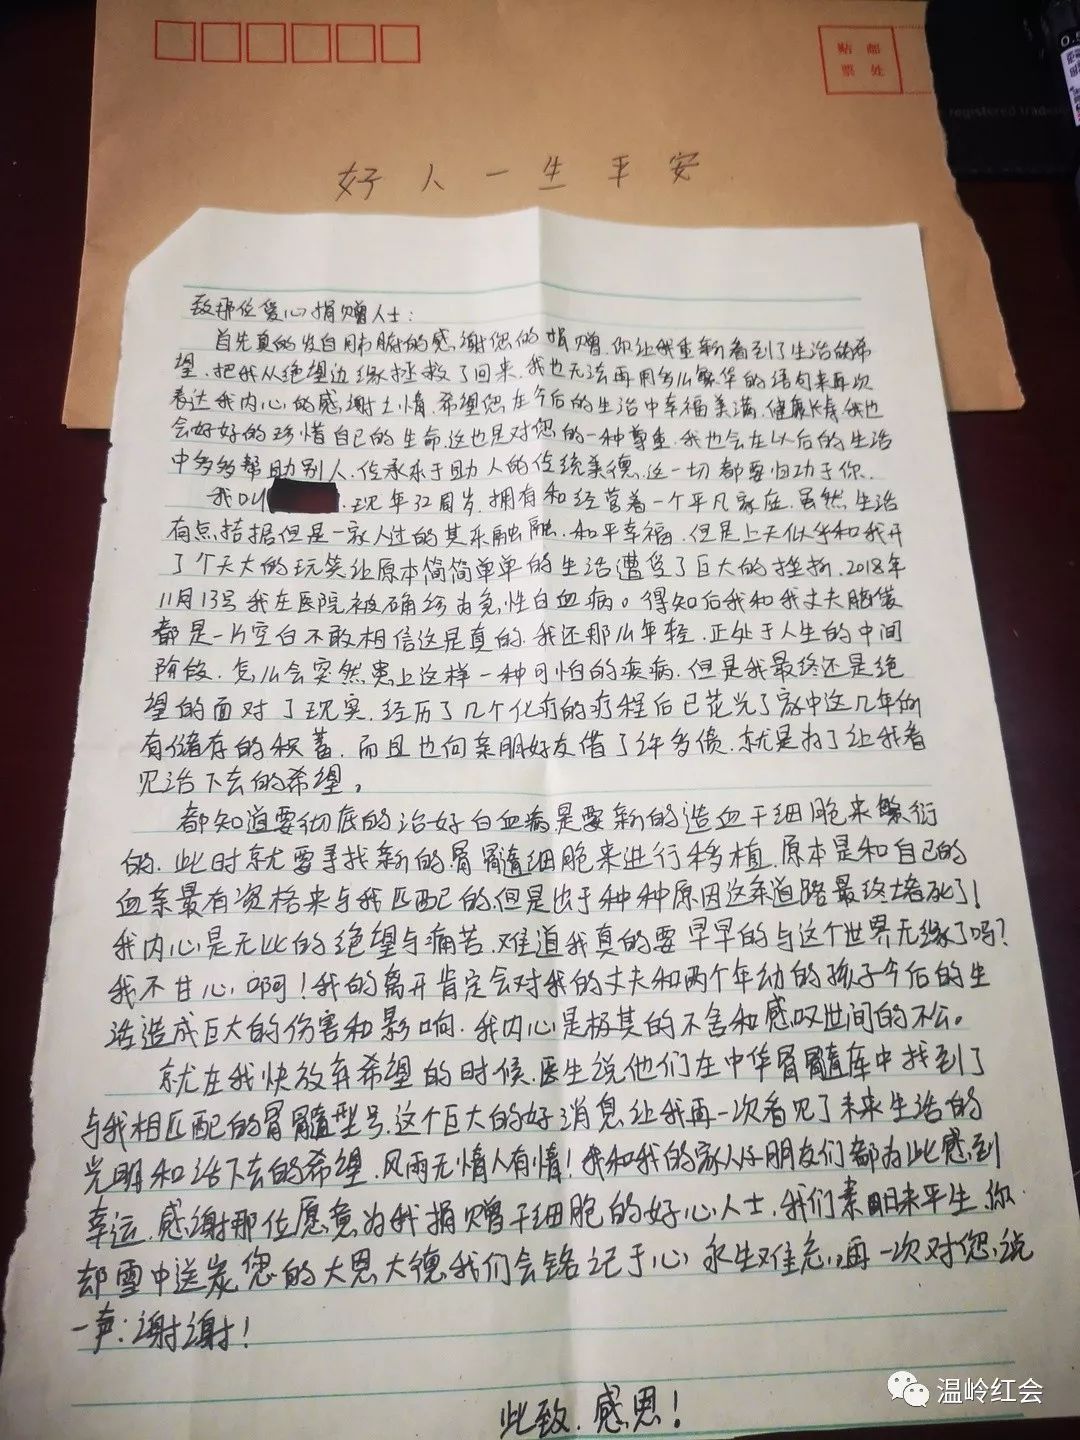 贴邮
票处
0.5
registered trade
好人一生平安
致那位爱心捐赠人士:
首先真的发自肺腑的感谢您的捐赠.你让我重新看到了生活的希
望.把我从绝望边缘拯救了回来.我也无法再用多么繁华的语句来再次
表达我内心的感谢之情.希望您在今后的生活中幸福美满.健康长寿.我也
会好好的珍惜自己的生命.这也是对您的一种尊重.我也会在以后的生活
中多多帮助别人.传承乐于助人的传统美德.这一切都要归功于你.
我叫 .现年32周岁.拥有和经营着一个平凡家庭.虽然生活
有点拮据但是一家人过的其乐融融.和平幸福.但是上天似乎和我开
了个天大的玩笑让原本简简单单的生活遭受了巨大的挫折.2018年
11月13号我在医院被确诊为急性白血病。得知后我和我丈夫脑袋
都是一片空白不敢相信这是真的.我还那么年轻.正处于人生的中间
阶段.怎么会突然患上这样一种可怕的疾病.但是我最终还是绝
望的面对了现实.经历了几个化疗的疗程后已花光了家中这几年所
有储存的积蓄.而且也向亲朋好友借了许多债.就是为了让我看
见活下去的希望。
都知道要彻底的治好白血病是要新的造血干细胞来繁衍
的.此时就要寻找新的骨髓细胞来进行移植.原本是和自己的
血亲最有资格来与我匹配的.但是出于种种原因这条道路最终堵死了!
我内心是无比的绝望与痛苦.难道我真的要早早的与这个世界无缘了吗?
我不甘心啊!我的离开肯定会对我的丈夫和两个年幼的孩子今后的生
活造成巨大的伤害和影响.我内心是极其的不舍和感叹世间的不公。
就在我快放弃希望的时候.医生说他们在中华骨髓库中找到了
与我相匹配的骨髓型号.这个巨大的好消息让我再一次看见了未来生活的
光明和活下去的希望.风雨无情人有情!我和我的家人与朋友们都为此感到
幸运.感谢那位愿意为我捐赠干细胞的好心人士.我们素昧平生.你
却雪中送炭.您的大恩大德我们会铭记于心永生难忘.再一次对您说
一声:谢谢!
此致.感恩!
温岭红会